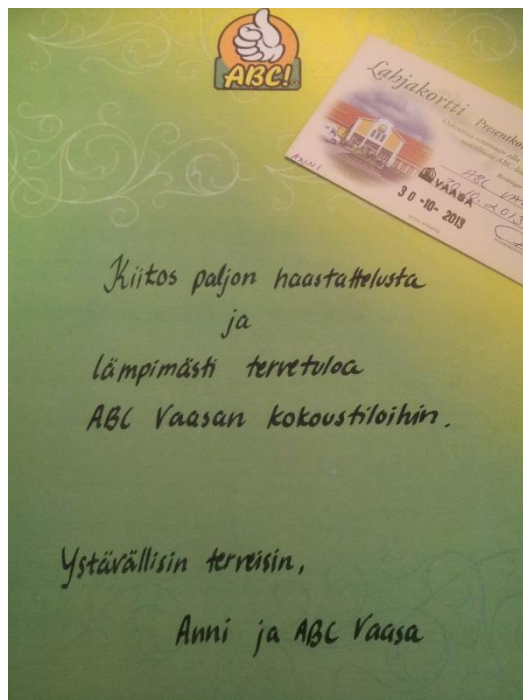 ABC!
Lahjakortti Presentkor
ANNI
ABC VA
VAASA
30-10-2013
Kiitos paljon haastattelusta
ja
lämpimästi tervetuloa
ABC Vaasan kokoustiloihin.
Ystävällisin terveisin,
Anni ja ABC Vaasa